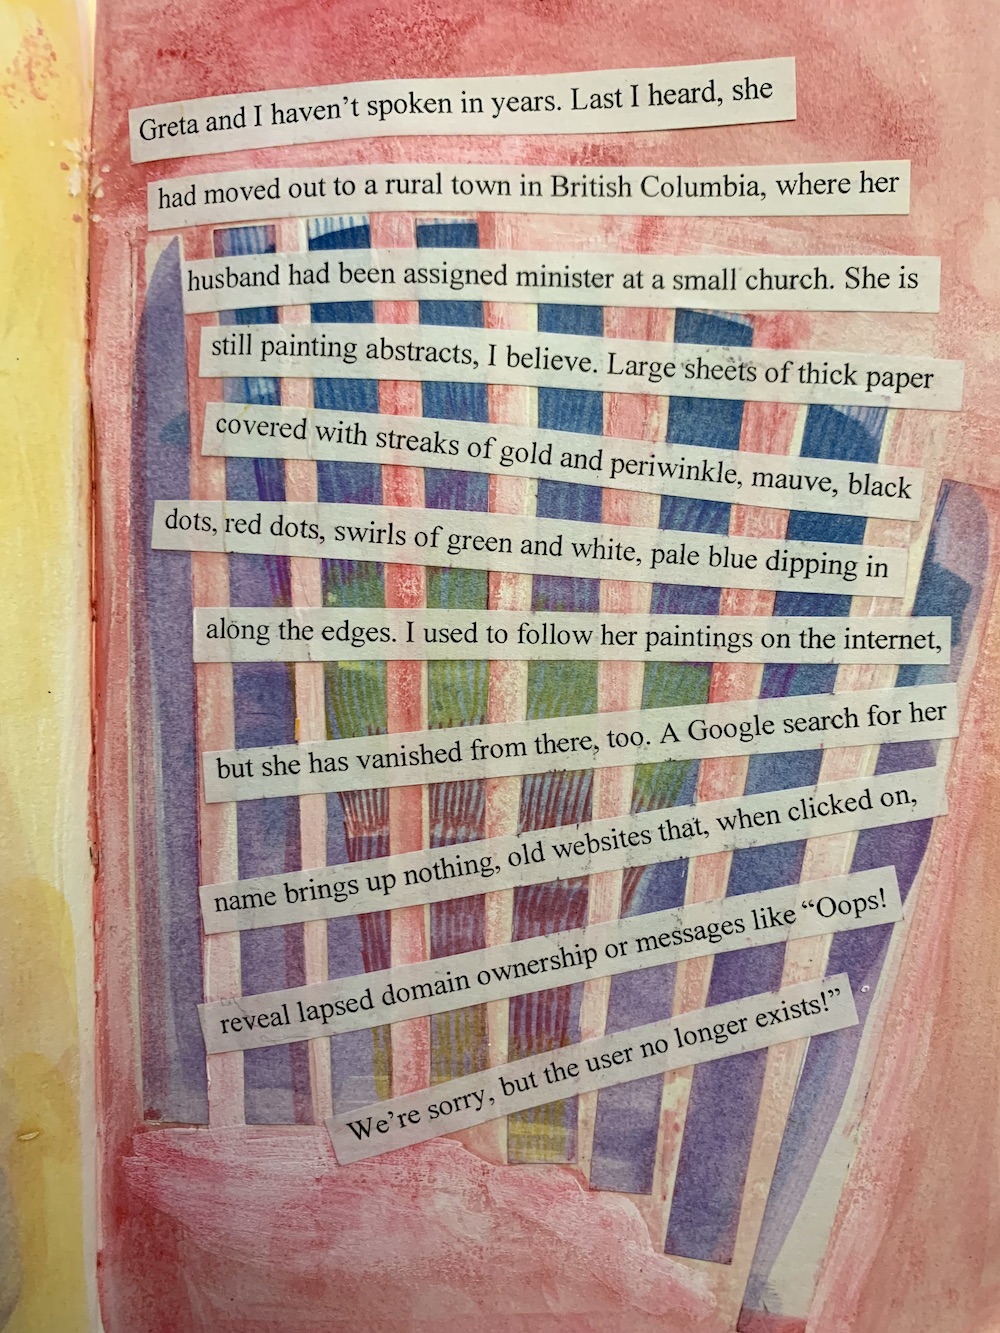 Greta and I haven’t spoken in years. Last I heard, she
had moved out to a rural town in British Columbia, where her
husband had been assigned minister at a small church. She is
still painting abstracts, I believe. Large sheets of thick paper
covered with streaks of gold and periwinkle, mauve, black
dots, red dots, swirls of green and white, pale blue dipping in
along the edges. I used to follow her paintings on the internet,
but she has vanished from there, too. A Google search for her
name brings up nothing, old websites that, when clicked on,
reveal lapsed domain ownership or messages like “Oops!
We’re sorry, but the user no longer exists!”